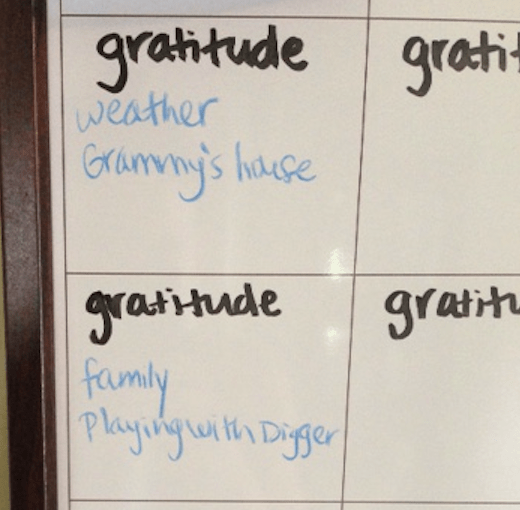 gratitude
weather
Grammy's house
gratit
gratitude
family
Playing with Digger
gratitu